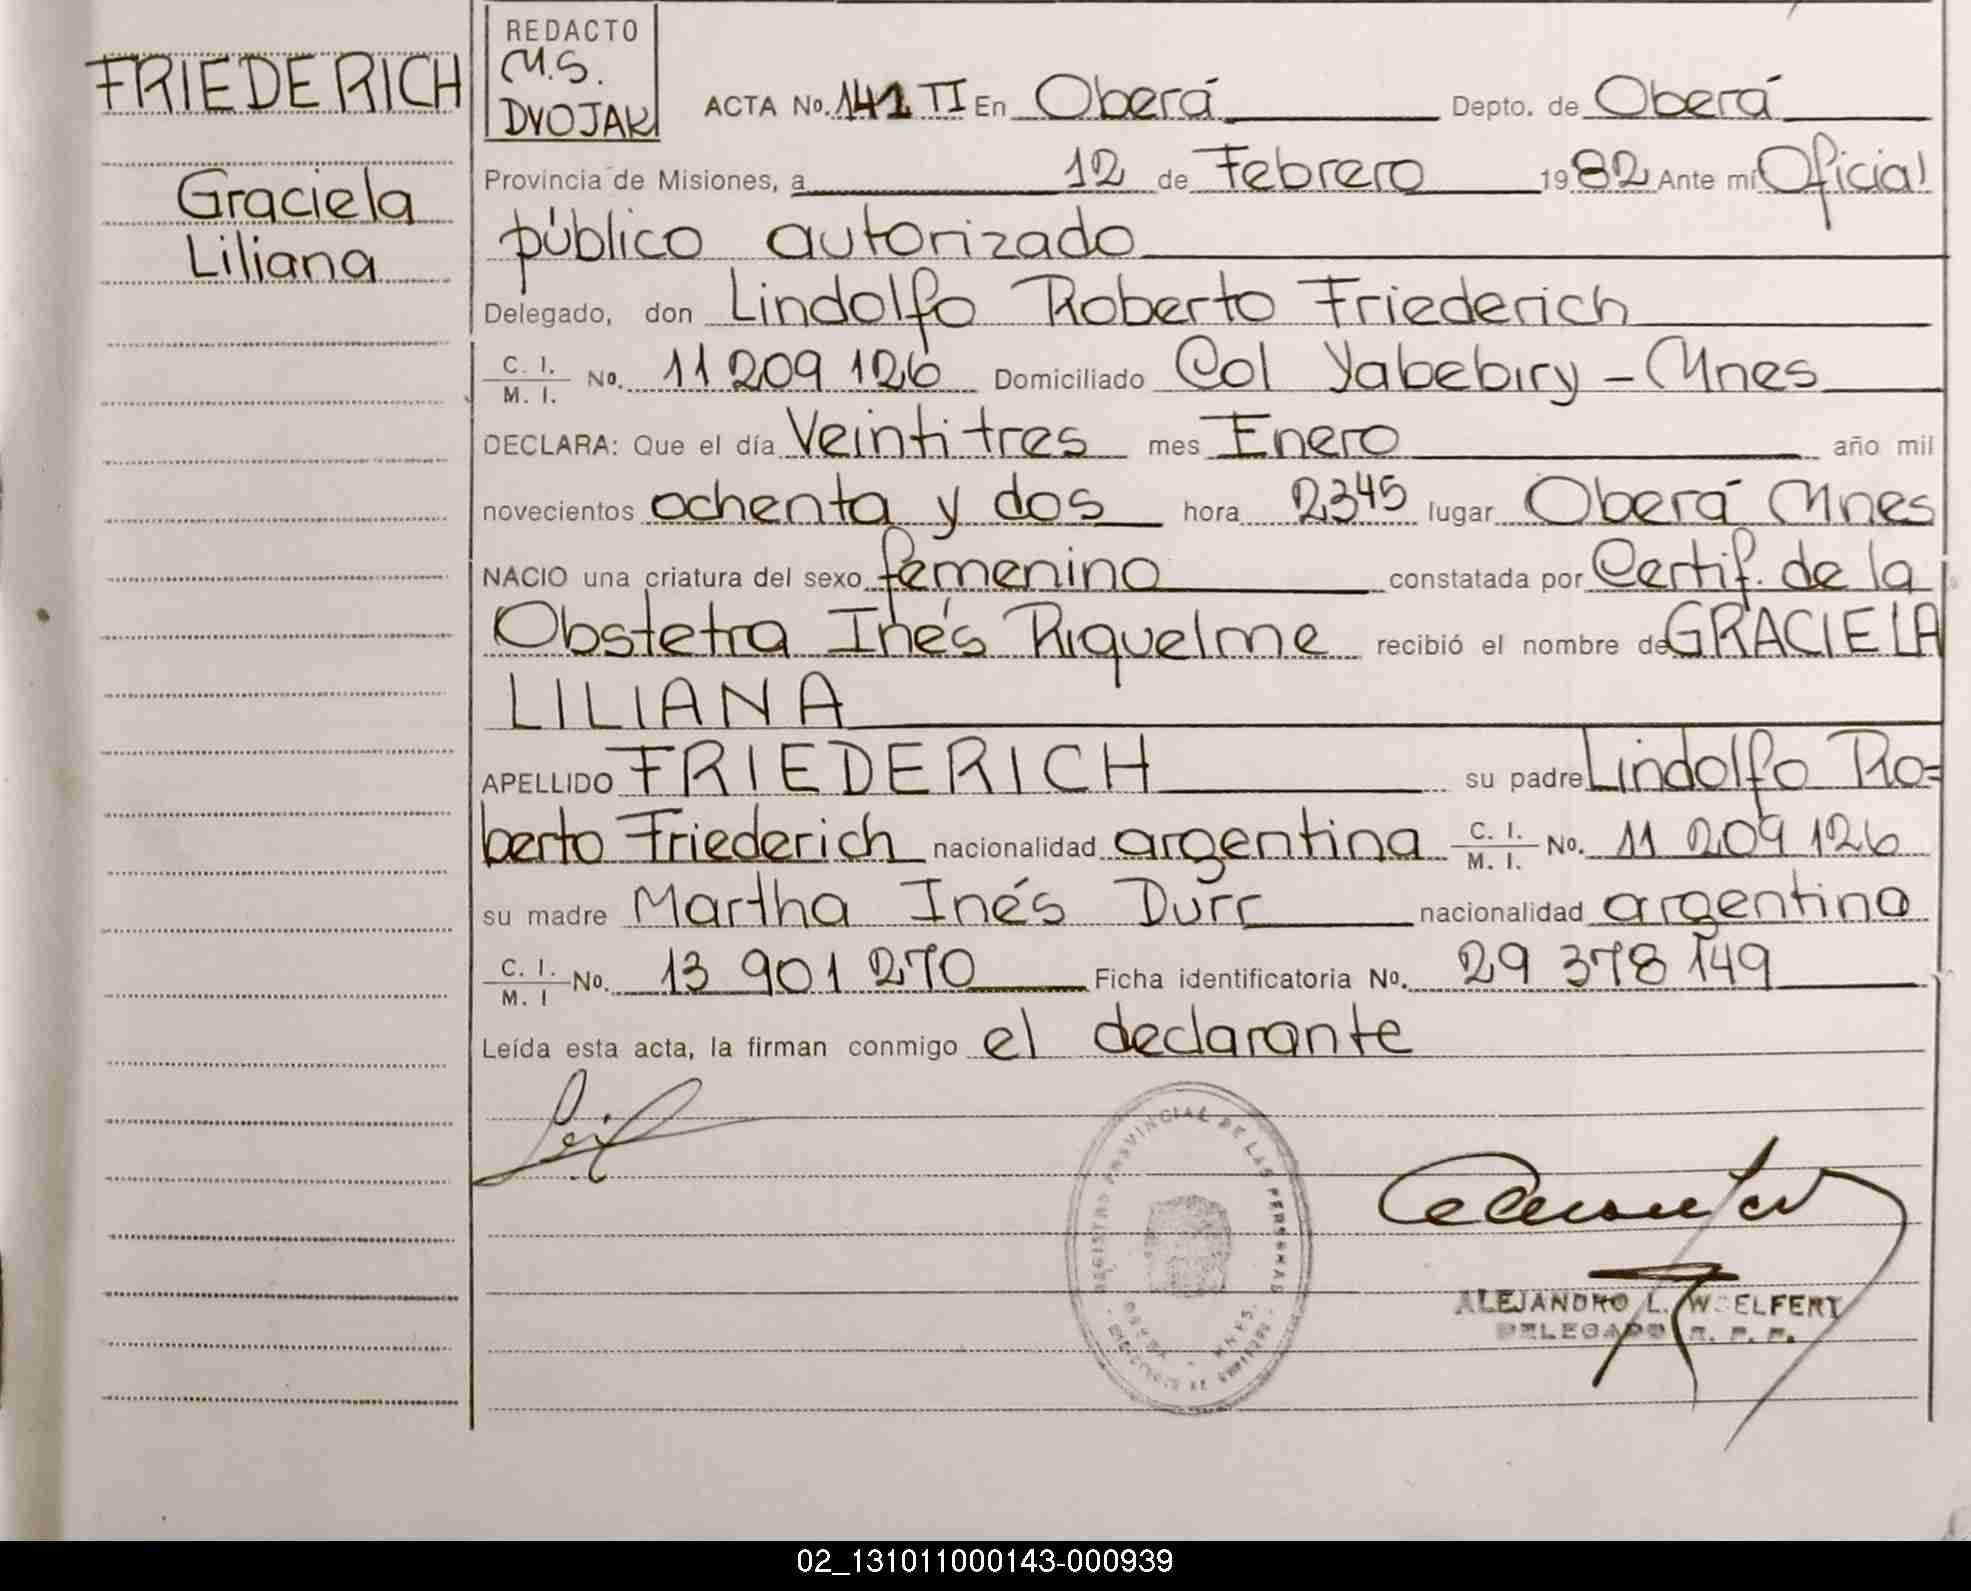 FRIEDERICH
Graciela
Liliana
REDACTO
M.S.
DVOJAK
ACTA No. 141 TI En Oberá Depto. de Oberá
Provincia de Misiones, a 12 de Febrero 1982 Ante mí Oficial
público autorizado
Delegado, don Lindolfo Roberto Friederich
C. I. / M. I. No. 11 209 126 Domiciliado Col Yabebiry - Mnes
DECLARA: Que el día Veintitres mes Enero año mil
novecientos ochenta y dos hora 2345 lugar Oberá Mnes
NACIO una criatura del sexo femenino constatada por Certif. de la
Obstetra Inés Riquelme recibió el nombre de GRACIELA
LILIANA
APELLIDO FRIEDERICH su padre Lindolfo Ro=
berto Friederich nacionalidad argentina C. I. / M. I. No. 11 209 126
su madre Martha Inés Durr nacionalidad argentina
C. I. / M. I No. 13 901 270 Ficha identificatoria No. 29 378 149
Leída esta acta, la firman conmigo el declarante
REGISTRO PROVINCIAL DE LAS PERSONAS
ALEJANDRO L. WOELFERT
DELEGADO R. P. P.
02_131011000143-000939